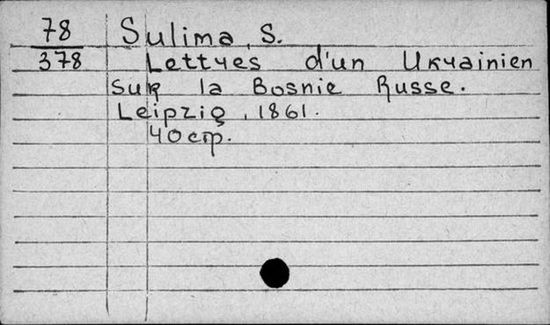 78 Sulima, S.
378 Lettres d'un Ukrainien
sur la Bosnie Russe.
Leipzig, 1861.
40 стр.